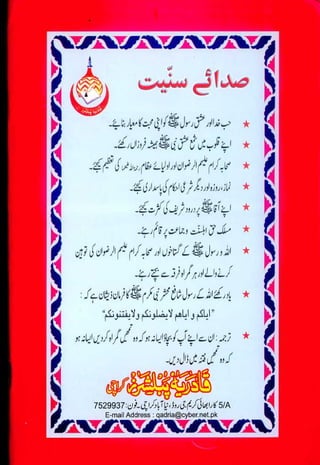 صدائے سنّیت
حب خدا اور عشق رسول ﷺ کو اپنی محبت کا معیار بنائیے۔
اپنے قلوب میں شمع عشق نبی ﷺ ہمیشہ فروزاں رکھئے۔
صحابہ کرام علیہم الرضوان اور اولیائے عظام کی تعظیم کیجئے۔
نماز، روزہ اور دیگر شرعی احکام کی پاسداری کیجئے۔
اپنے آقا ﷺ پر درود شریف کی کثرت کیجئے۔
مسلک حق اہلسنت و جماعت پر قائم رہئے۔
اللہ و رسول ﷺ کے گستاخوں اور صحابہ کرام علیہم الرضوان کی توہین
کرنے والے اور ہر گمراہ فرقہ سے بچتے رہئے۔
یاد رکھئے اللہ کے رسول شافع محشر نبی مکرم ﷺ کا فرمان ذیشان ہے کہ:
"ایاکم و ایاھم لایضلونکم ولایفتنونکم"
ترجمہ: ان سے اپنے آپ کو بچاؤ ایسا نہ ہو کہ وہ تمہیں گمراہ کر دیں ایسا نہ ہو
کہ وہ تمہیں فتنہ میں ڈال دیں۔
قادریہ پبلشرز کراچی
5/A کارا بھائی کریم جی روڈ، نیا آباد کراچی۔ فون: 7529937
E-mail Address : qadria@cyber.net.pk